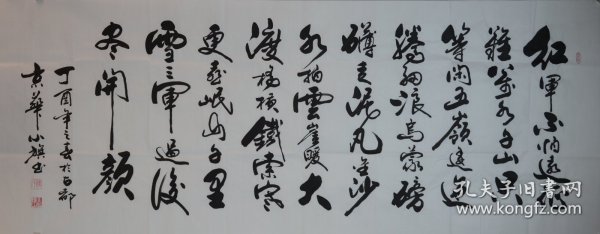 紅軍不怕遠征
難萬水千山只
等閑五嶺逶迤
騰細浪烏蒙磅
礴走泥丸金沙
水拍雲崖暖大
渡橋橫鐵索寒
更喜岷山千里
雪三軍過後
盡開顏
丁酉年之春於首都
京華小
孔夫子旧书网
www.kongfz.com